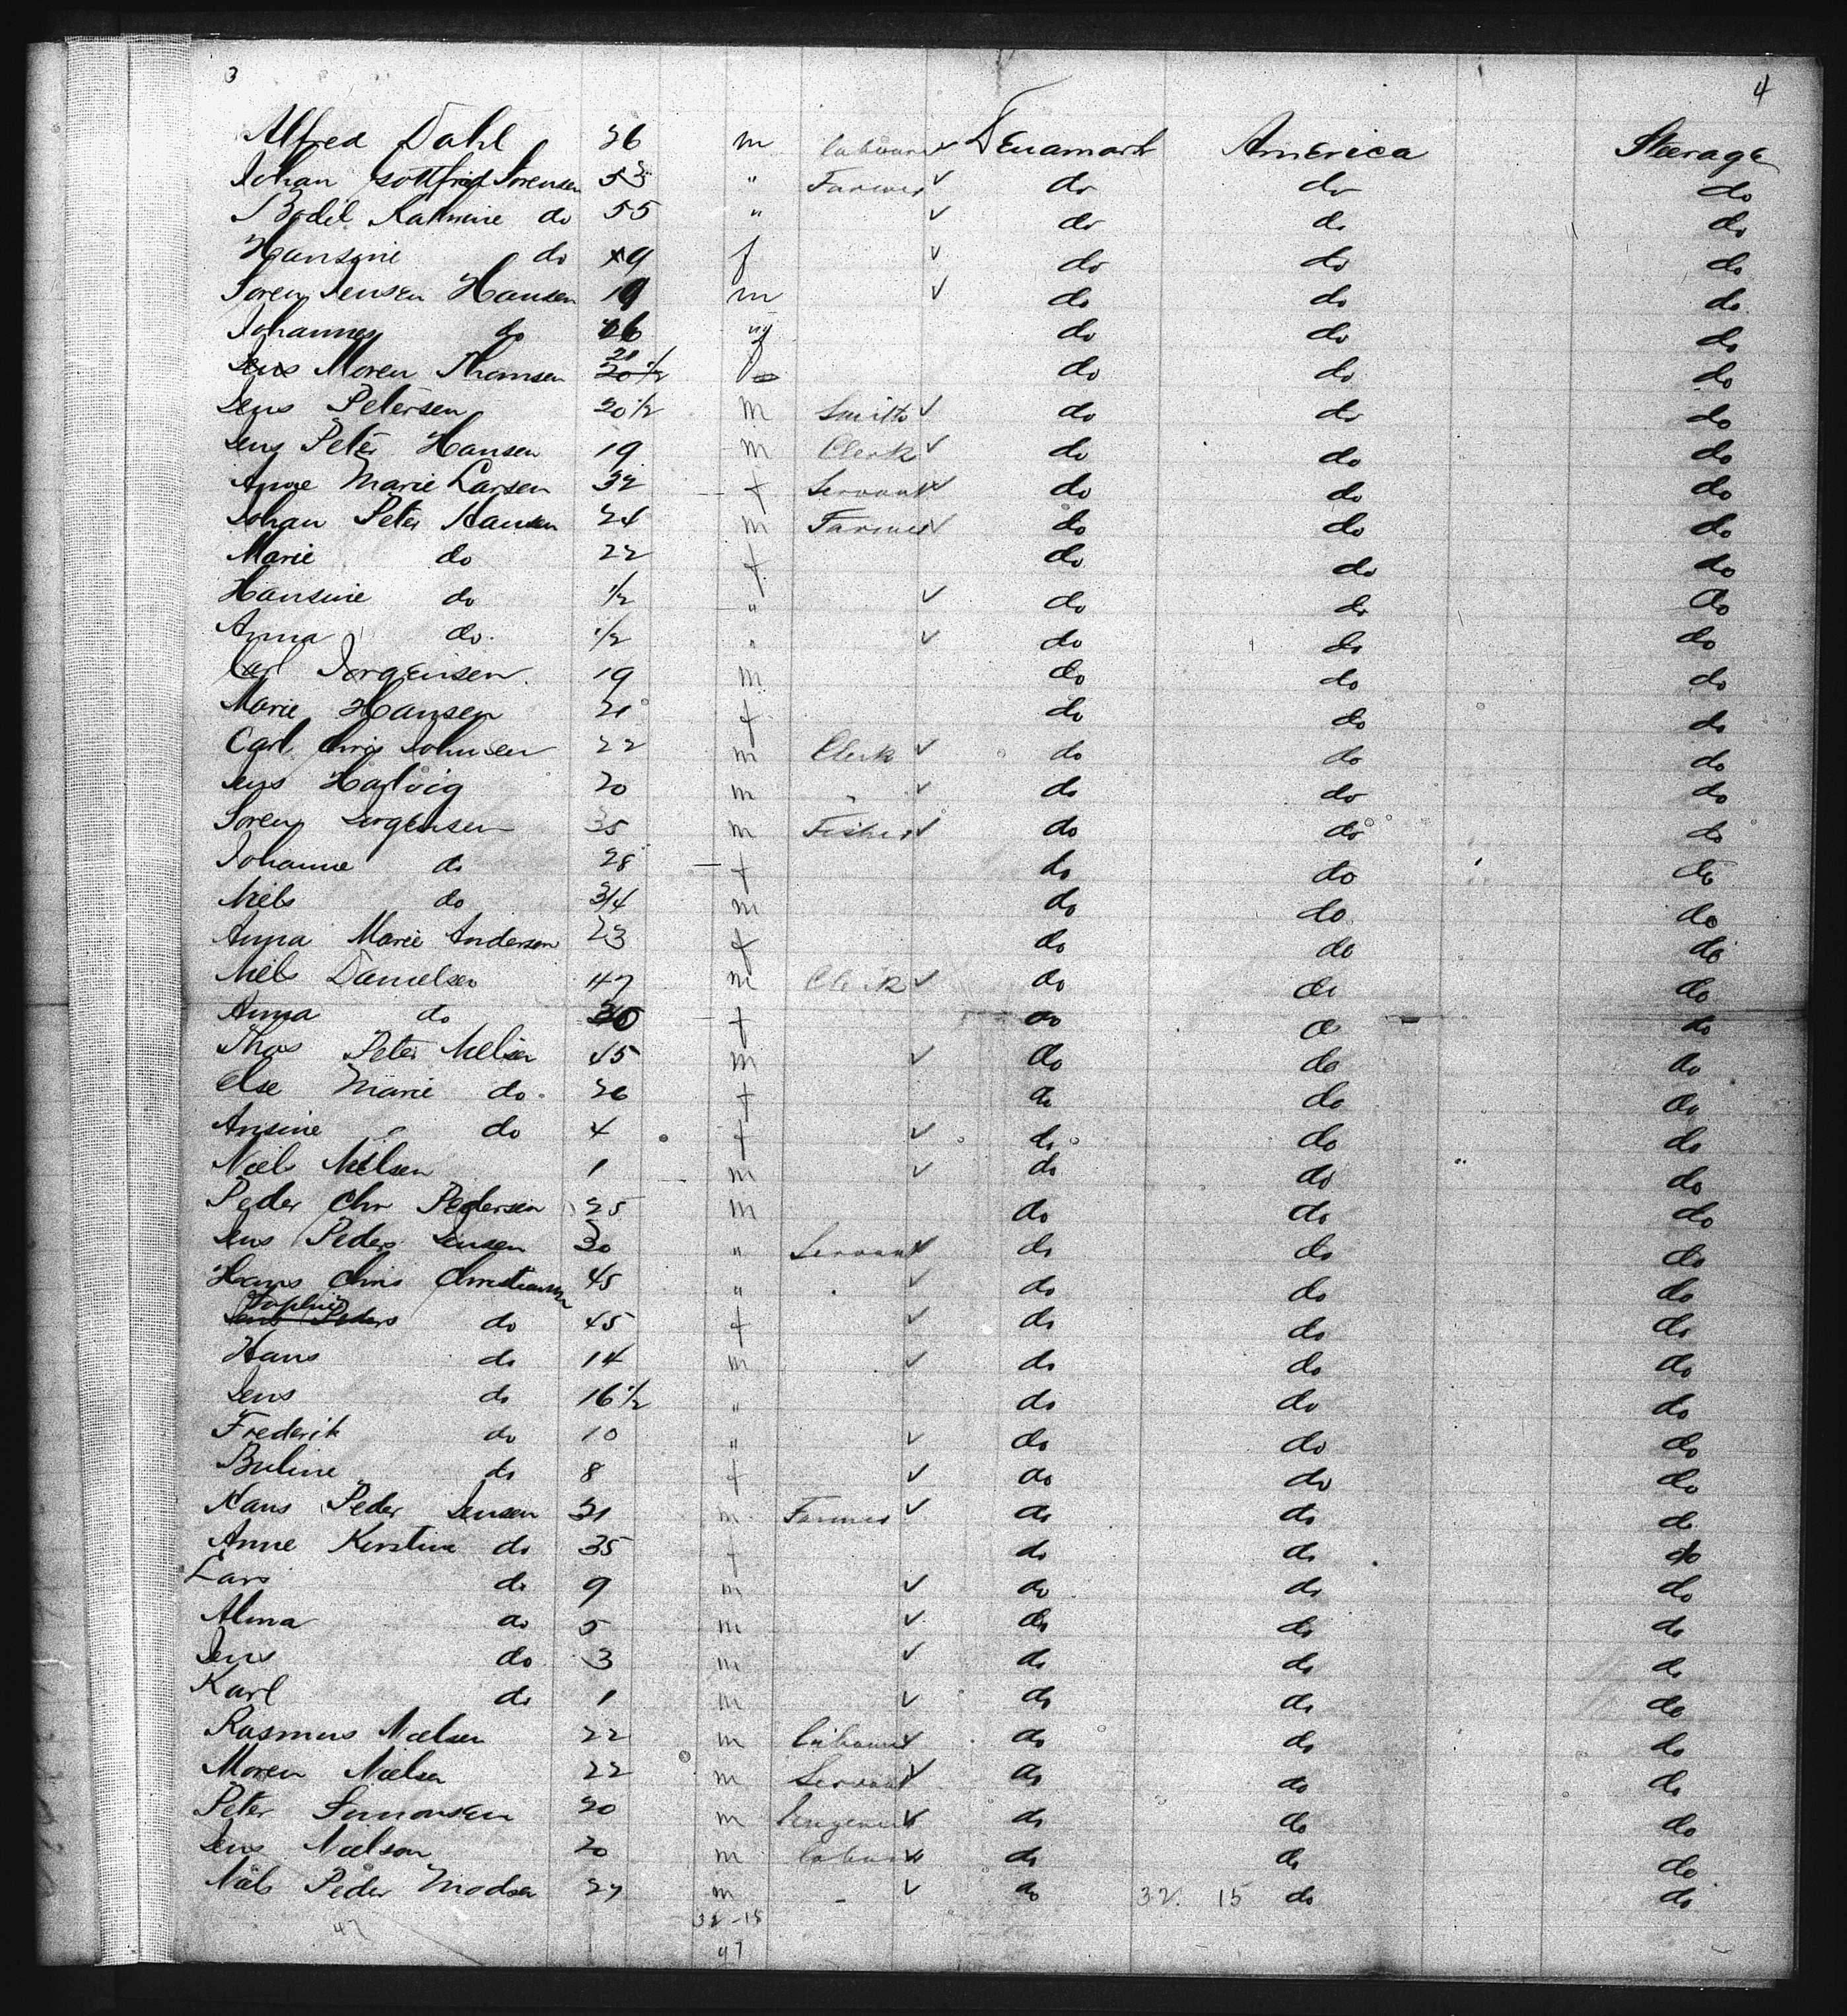 3 4
Alfred Dahl 26 m labourer ✓ Denamark America Steerage
Johan Gottfried Sorensen 53 " Farmer ✓ do do do
Bodil Katrine do 55 " ✓ do do do
Hansine do 19 f ✓ do do do
Soren Jensen Hansen 19 m ✓ do do do
Johannes do do do do
Jens Moren Thomsen do do do
Jens Petersen 20 1/2 m Smith ✓ do do do
Jens Peter Hansen 19 m Clerk ✓ do do do
Anne Marie Larsen 32 f Servant ✓ do do do
Johan Peter Hansen 24 m Farmer ✓ do do do
Marie do 22 f do do do
Hansine do 1/2 " ✓ do do do
Anna do 1/2 " ✓ do do do
Carl Jorgensen 19 m do do do
Marie Hansen 21 f do do do
Carl Chris Johnsen 22 m Clerk ✓ do do do
Jens Hartvig 20 m " ✓ do do do
Soren Jorgensen 35 m Fisher ✓ do do do
Johanne do 28 f do do do
Niels do 3/4 m do do do
Anna Marie Andersen 23 f do do do
Niels Danielsen 47 m Clerk ✓ do do do
Anna do 30 f do do do
Thos Peter Nielsen 45 m ✓ do do do
Else Marie do 26 f do do do
Ansine do 4 f ✓ do do do
Niels Nielsen 1 m ✓ do do do
Peder Chr Pedersen 25 m do do do
Jens Peder Jensen 30 " Servant ✓ do do do
Hans Chris Christiansen 45 " ✓ do do do
Sophie do 45 f ✓ do do do
Hans do 14 m ✓ do do do
Jens do 16 1/2 " do do do
Frederik do 10 " ✓ do do do
Buline do 8 f ✓ do do do
Hans Peder Jensen 31 m Farmer ✓ do do do
Anne Kirstine do 35 f do do do
Lars do 9 m ✓ do do do
Alma do 5 m ✓ do do do
Jens do 3 m ✓ do do do
Karl do 1 m ✓ do do do
Rasmus Nielsen 22 m labourer ✓ do do do
Moren Nielsen 22 m Servant ✓ do do do
Peter Simonsen 20 m ✓ do do do
Jens Nielson 20 m labourer ✓ do do do
Niels Peder Madsen 27 m - ✓ do 32 15 do do
32-15
47 47